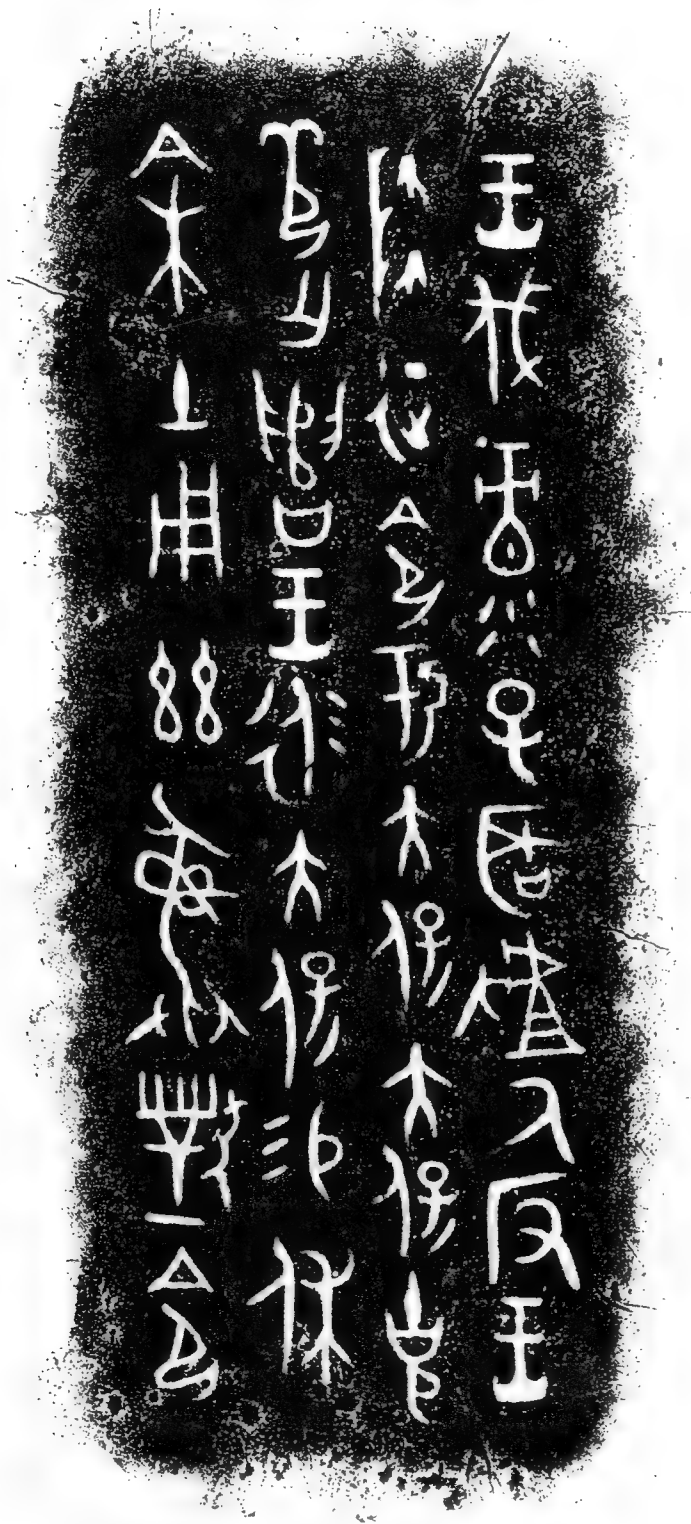 王伐彔子聖𠭯厥反王
降征令于大保大保克
敬亡遣王永大保易休
余土用茲彝對令